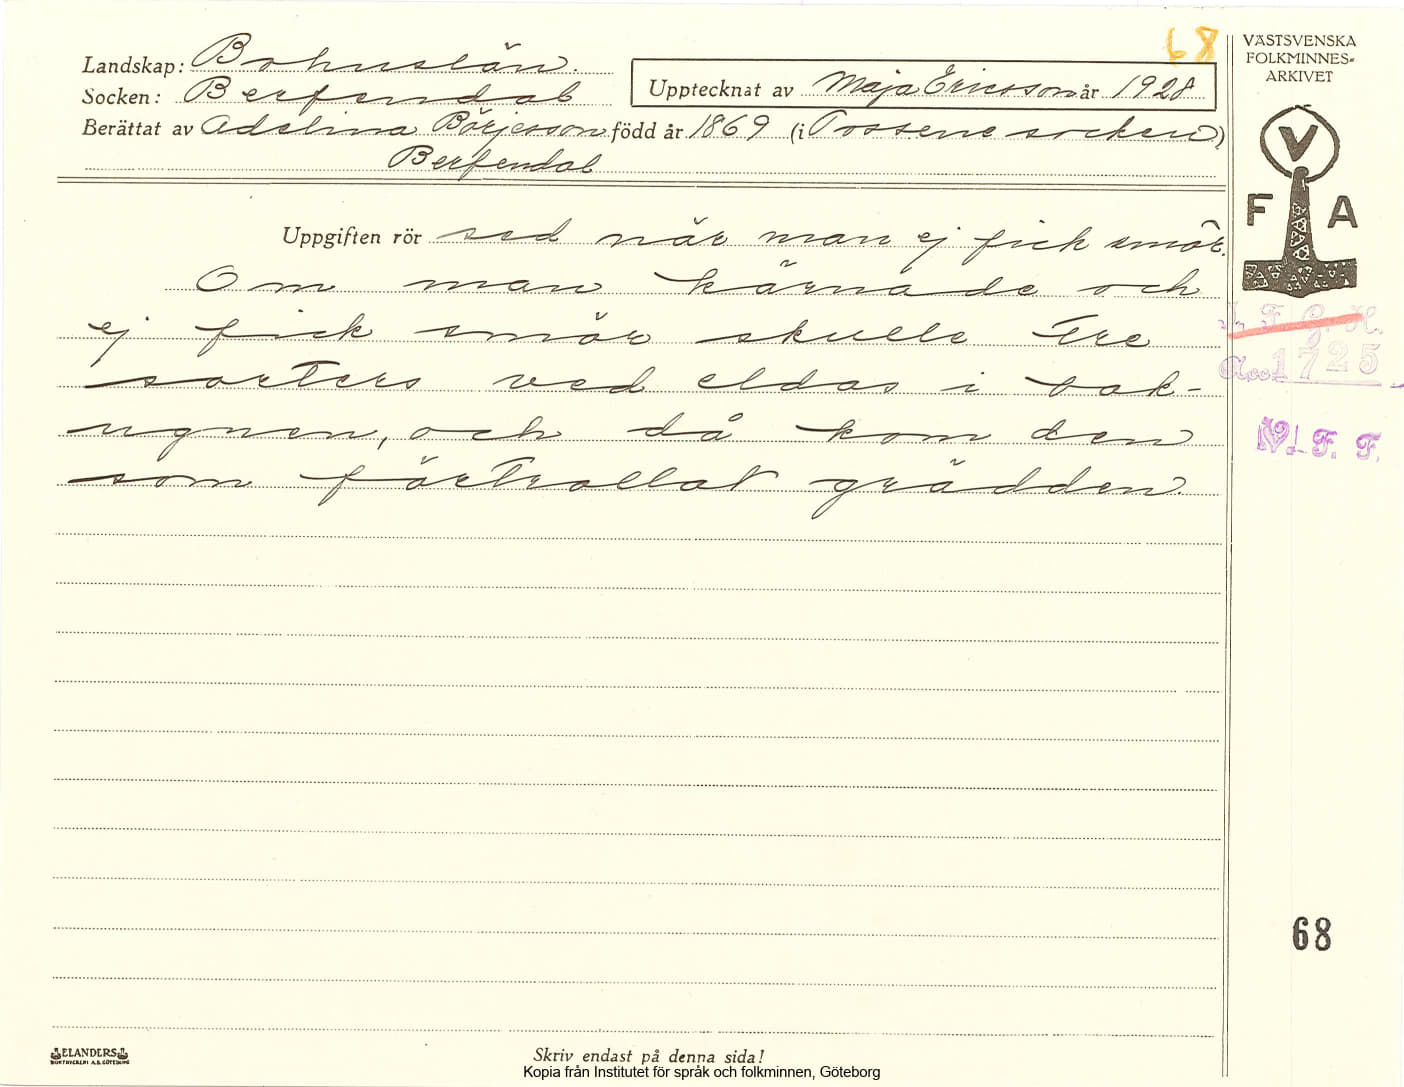 68
Landskap: Bohuslän.
Socken: Berfendal
Upptecknat av Maja Ericsson år 1928
Berättat av Adelina Börjesson född år 1869 (i Tossene socken)
Berfendal
VÄSTSVENSKA
FOLKMINNES-
ARKIVET
V
F A
Uppgiften rör sed när man ej fick smör.
Om man kärnade och
ej fick smör skulle tre
sorters ved eldas i bak-
ugnen, och då kom den
som förtrollat grädden.
V. F. G. H.
Acc. 1725
V. F. F.
68
ELANDERS
BOKTRYCKERI A.B. GÖTEBORG
Skriv endast på denna sida!
Kopia från Institutet för språk och folkminnen, Göteborg